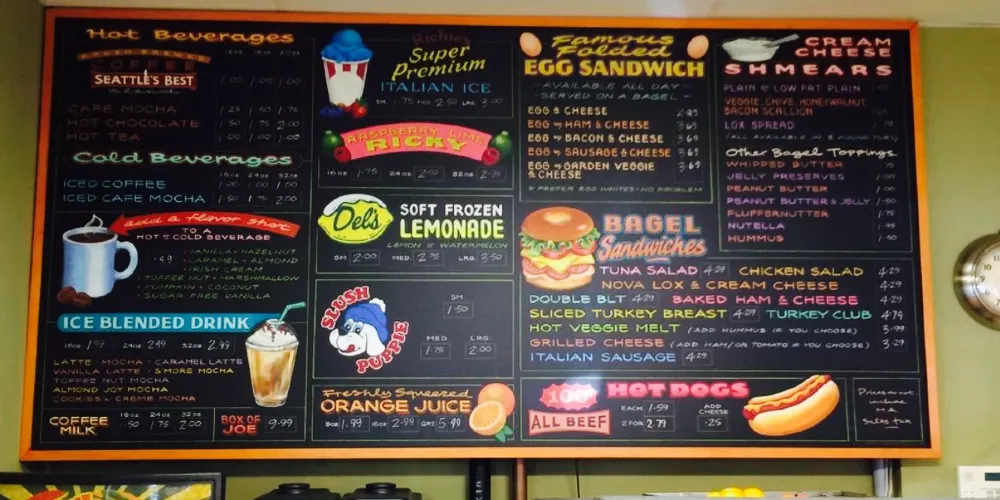 Hot Beverages
16oz 18oz 20oz
FRESH BREWED
COFFEE
SEATTLE'S BEST
blend
1.00 1.00 1.00
CAFÉ MOCHA 1.25 1.50 1.75
HOT CHOCOLATE 1.50 1.75 2.00
HOT TEA 1.00 1.00 1.00
Cold Beverages
16oz 24oz 32oz
ICED COFFEE 1.00 1.00 1.00
ICED CAFÉ MOCHA 1.50 1.75 2.00
add a flavor shot
TO A
HOT or COLD BEVERAGE
.49
VANILLA • HAZELNUT
CARAMEL • ALMOND
IRISH CREAM
TOFFEE NUT • MARSHMALLOW
PUMPKIN • COCONUT
SUGAR FREE VANILLA
ICE BLENDED DRINK
16oz 1.99 24oz 2.49 32oz 2.99
LATTE • MOCHA • CARAMEL LATTE
VANILLA LATTE • S'MORE MOCHA
TOFFEE NUT MOCHA
ALMOND JOY MOCHA
COOKIES & CREME MOCHA
COFFEE MILK
16oz 24oz 32oz
1.50 1.75 2.00
BOX OF JOE 9.99
Richie's
Super
Premium
ITALIAN ICE
SM. 1.75 MED. 2.50 LRG. 3.00
RASPBERRY LIME
RICKY
16oz 1.75 24oz 2.50 32oz
Del's
SOFT FROZEN
LEMONADE
LEMON or WATERMELON
SM 2.00 MED. 2.75 LRG. 3.50
SLUSH
PUPPIE
SM.
1.50
MED. LRG.
1.75 2.00
Freshly Squeezed
ORANGE JUICE
8oz 1.99 16oz 2.99 QRT. 5.49
Famous
Folded
EGG SANDWICH
AVAILABLE ALL DAY
SERVED ON A BAGEL
EGG & CHEESE 2.89
EGG w/ HAM & CHEESE 3.69
EGG w/ BACON & CHEESE 3.69
EGG w/ SAUSAGE & CHEESE 3.69
EGG w/ GARDEN VEGGIE
& CHEESE 3.69
PREFER EGG WHITES - NO PROBLEM
BAGEL
Sandwiches
TUNA SALAD 4.29 CHICKEN SALAD 4.29
NOVA LOX & CREAM CHEESE 4.29
DOUBLE BLT 4.29 BAKED HAM & CHEESE 4.29
SLICED TURKEY BREAST 4.29 TURKEY CLUB 4.79
HOT VEGGIE MELT (ADD HUMMUS IF YOU CHOOSE) 3.99
GRILLED CHEESE (ADD HAM/OR TOMATO IF YOU CHOOSE) 3.29
ITALIAN SAUSAGE 4.29
100
ALL BEEF
HOT DOGS
EACH 1.59
2 FOR 2.79
ADD
CHEESE
.25
CREAM
CHEESE
SHMEARS
PLAIN or LOW FAT PLAIN
VEGGIE, CHIVE, HONEY WALNUT,
BACON SCALLION
LOX SPREAD
Other Bagel Toppings
WHIPPED BUTTER
JELLY PRESERVES 1.00
PEANUT BUTTER 1.00
PEANUT BUTTER & JELLY 1.50
FLUFFERNUTTER 1.75
NUTELLA
HUMMUS 1.50
Prices do not
include
MA
Sales tax